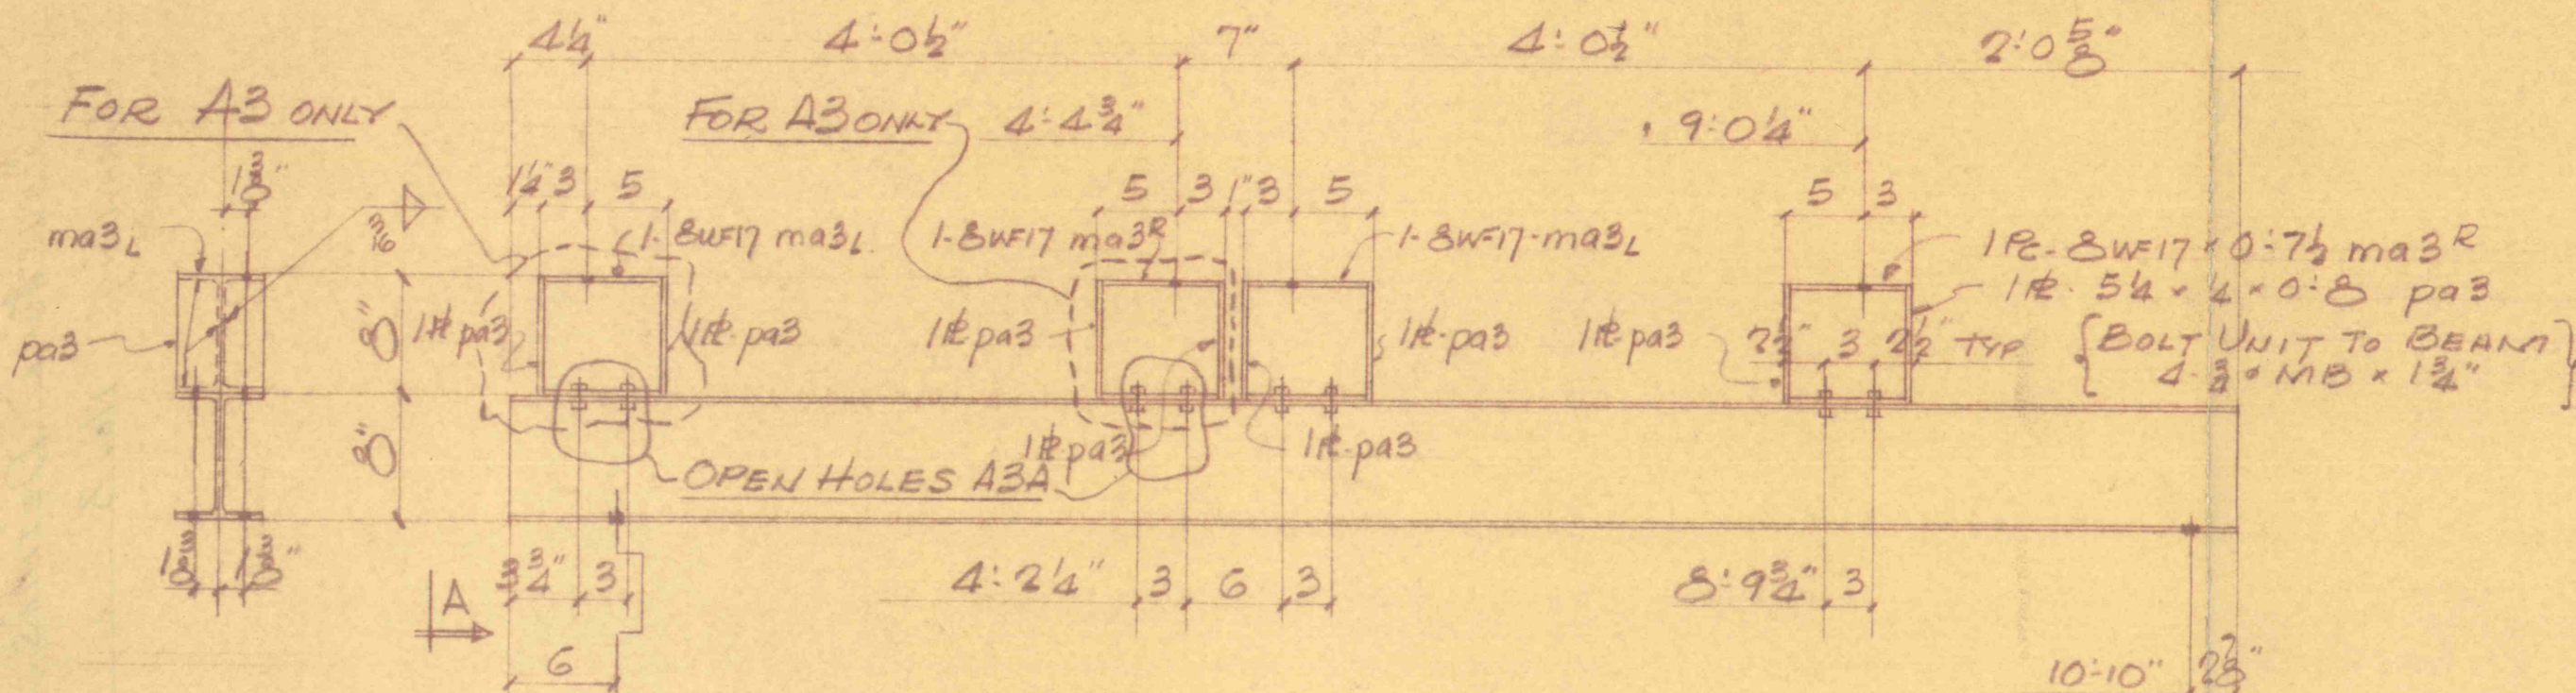 4¼" 4'-0½" 7" 4'-0½" 2'-0⅝"
FOR A3 ONLY FOR A3 ONLY 4'-4¾" 9'-0¼"
1⅜" 1¼" 3 5 5 3 1" 3 5 5 3
3/16
ma3L 1-8WF17 ma3L 1-8WF17 ma3R 1-8WF17-ma3L 1PC-8WF17 x 0'-7½ ma3R
1PL 5¼ x ¼ x 0'-8 pa3
pa3 8" 1PL pa3 1PL-pa3 1PL pa3 1PL-pa3 1PL pa3 2½" 3 2½" TYP {BOLT UNIT TO BEAM}
4-¾"ø MB x 1¾"
8" 1PL pa3 1PL-pa3
OPEN HOLES A3A
1⅜" 1⅜" 3¾" 3 4'-2¼" 3 6 3 8'-9¾" 3
A
6 10'-10" 2⅞"